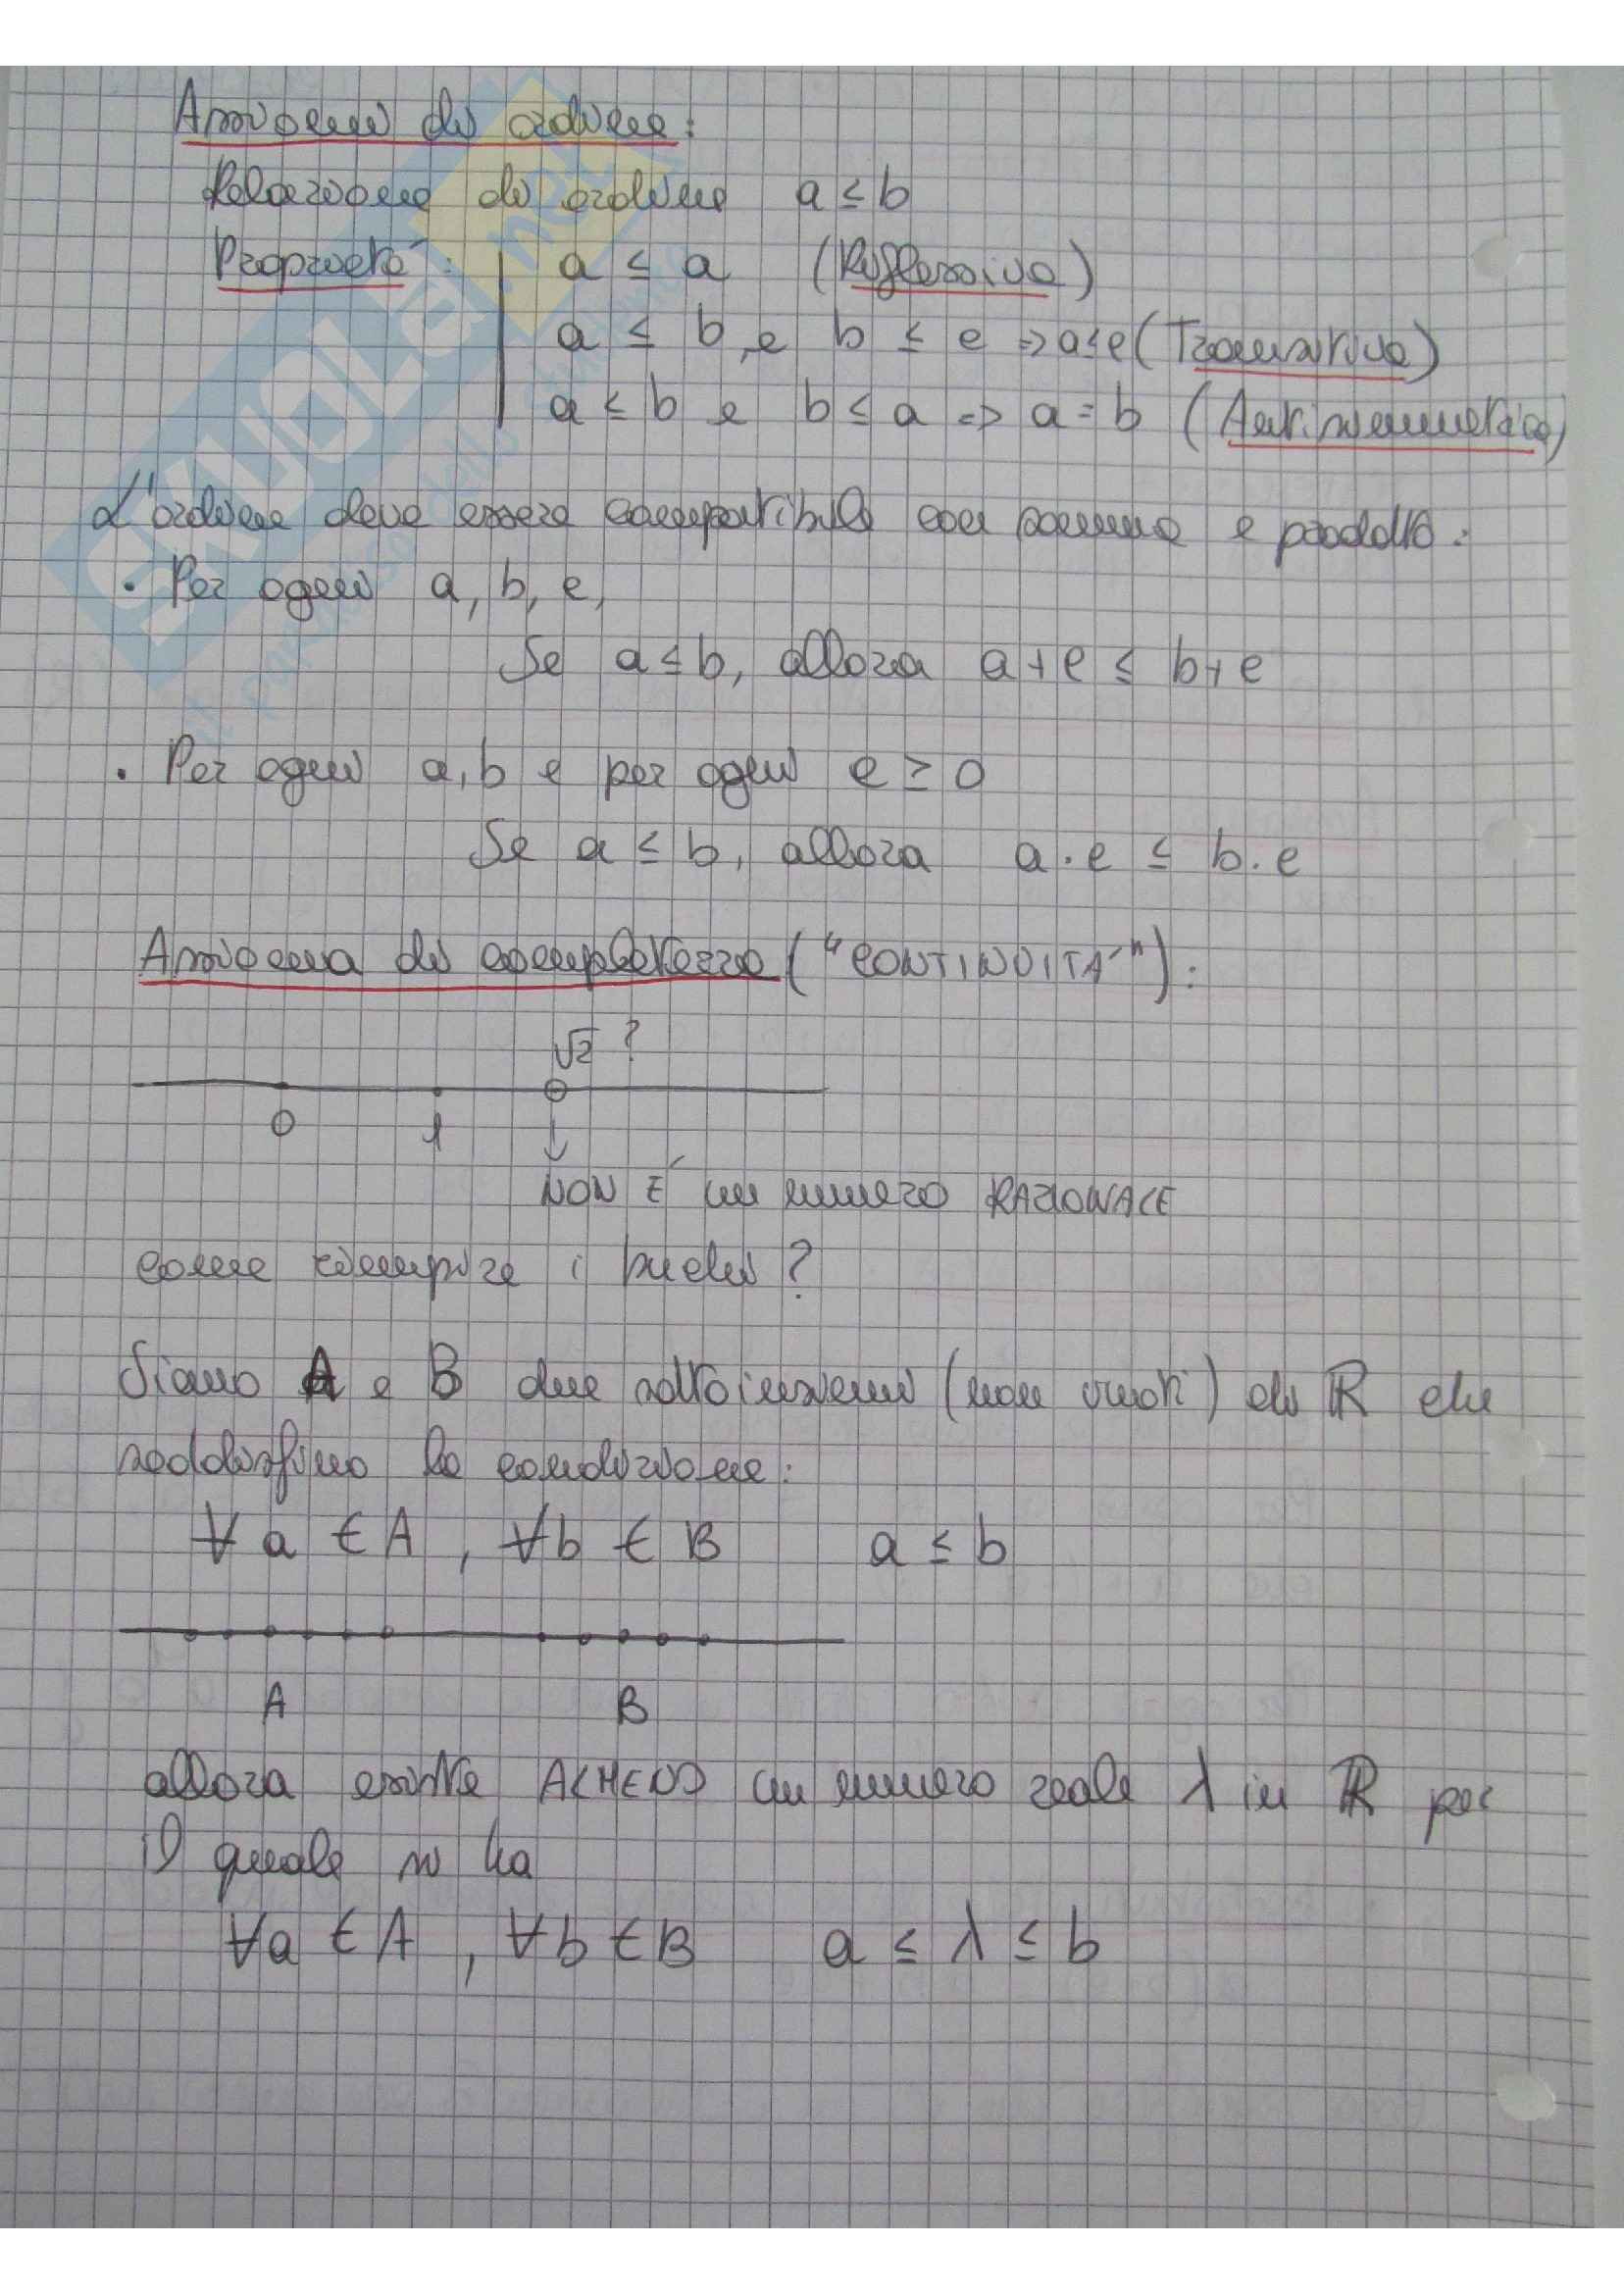 Assiomi di ordine:
Relazione di ordine a ≤ b
Proprietà: a ≤ a (Riflessiva)
a ≤ b, e b ≤ c => a ≤ c (Transitiva)
a ≤ b e b ≤ a => a = b (Antisimmetrica)
L'ordine deve essere compatibile con somma e prodotto:
• Per ogni a, b, c,
Se a ≤ b, allora a + c ≤ b + c
• Per ogni a, b e per ogni c ≥ 0
Se a ≤ b, allora a · c ≤ b · c
Assioma di completezza ("CONTINUITÀ"):
√2 ?
0 1
NON È un numero RAZIONALE
come riempire i buchi?
Siano A e B due sottoinsiemi (non vuoti) di ℝ che
soddisfino la condizione:
∀ a ∈ A, ∀ b ∈ B a ≤ b
A B
allora esiste ALMENO un numero reale λ in ℝ per
il quale si ha
∀ a ∈ A, ∀ b ∈ B a ≤ λ ≤ b
SKUOLA.net